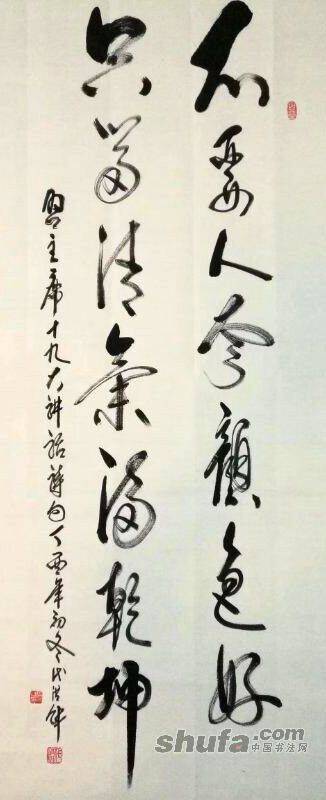 不要人夸颜色好
只留清气满乾坤
习主席十九大讲话诗句丁酉年初冬
shufa.com
中国书法网